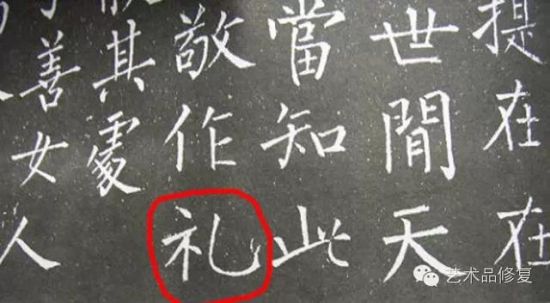 提在在
世間天
當知此
敬作礼
其處
善女人
艺术品修复